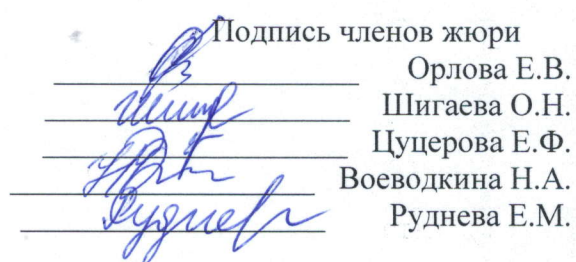 Подпись членов жюри
Орлова Е.В.
Шигаева О.Н.
Цуцерова Е.Ф.
Воеводкина Н.А.
Руднева Е.М.